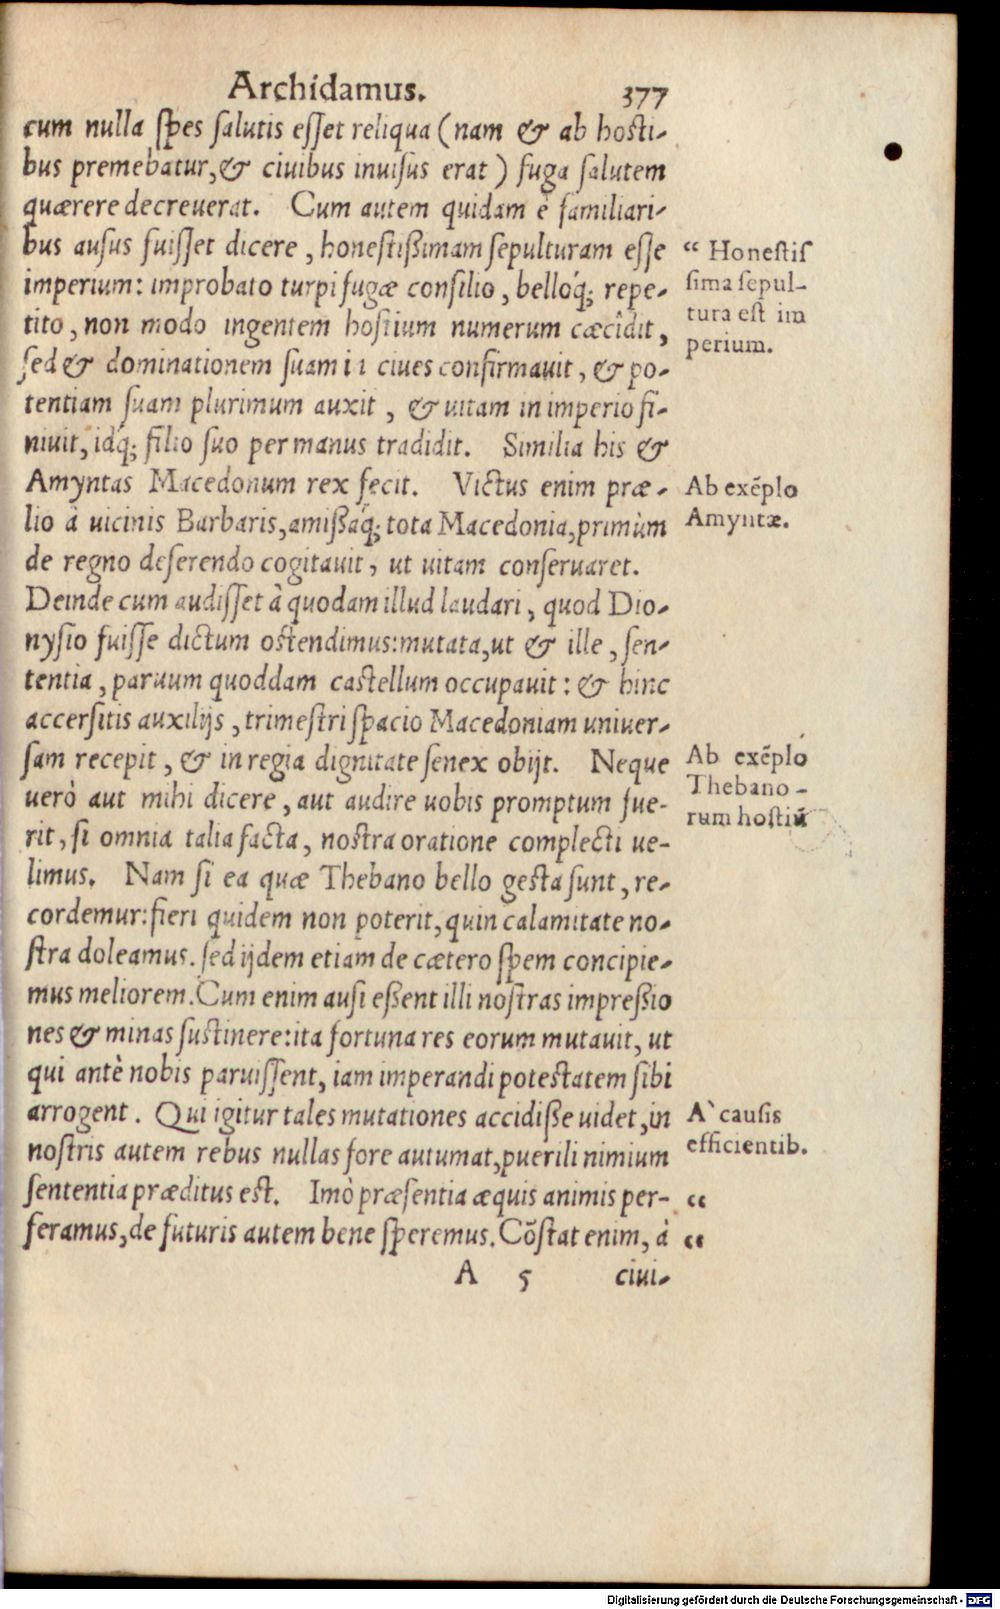 Archidamus. 377
cum nulla spes salutis esset reliqua (nam & ab hosti-
bus premebatur, & ciuibus inuisus erat) fuga salutem
quærere decreuerat. Cum autem quidam è familiari-
bus ausus fuisset dicere, honestißimam sepulturam esse
imperium: improbato turpi fugæ consilio, belloq́; repe-
tito, non modo ingentem hostium numerum cæcîdit,
sed & dominationem suam in ciues confirmauit, & po-
tentiam suam plurimum auxit, & uitam in imperio fi-
niuit, idq́; filio suo per manus tradidit. Similia his &
Amyntas Macedonum rex fecit. Victus enim præ-
lio à uicinis Barbaris, amißaq́; tota Macedonia, primùm
de regno deserendo cogitauit, ut uitam conseruaret.
Deinde cum audisset à quodam illud laudari, quod Dio-
nysio fuisse dictum ostendimus: mutata, ut & ille, sen-
tentia, paruum quoddam castellum occupauit: & hinc
accersitis auxilijs, trimestri spacio Macedoniam uniuer-
sam recepit, & in regia dignitate senex obijt. Neque
uerò aut mihi dicere, aut audire uobis promptum fue-
rit, si omnia talia facta, nostra oratione complecti ue-
limus. Nam si ea quæ Thebano bello gesta sunt, re-
cordemur: fieri quidem non poterit, quin calamitate no-
stra doleamus. sed ijdem etiam de cætero spem concipie-
mus meliorem. Cum enim ausi eßent illi nostras impreßio
nes & minas sustinere: ita fortuna res eorum mutauit, ut
qui antè nobis paruissent, iam imperandi potestatem sibi
arrogent. Qui igitur tales mutationes accidiße uidet, in
nostris autem rebus nullas fore autumat, puerili nimium
sententia præditus est. Imò præsentia æquis animis per-
feramus, de futuris autem bene speremus. Cõstat enim, à
A 5 ciui-
“ Honestis
sima sepul-
tura est im
perium.
Ab exẽplo
Amyntæ.
Ab exẽplo
Thebano-
rum hostiũ
A` causis
efficientib.
“
“
Digitalisierung gefördert durch die Deutsche Forschungsgemeinschaft - DFG